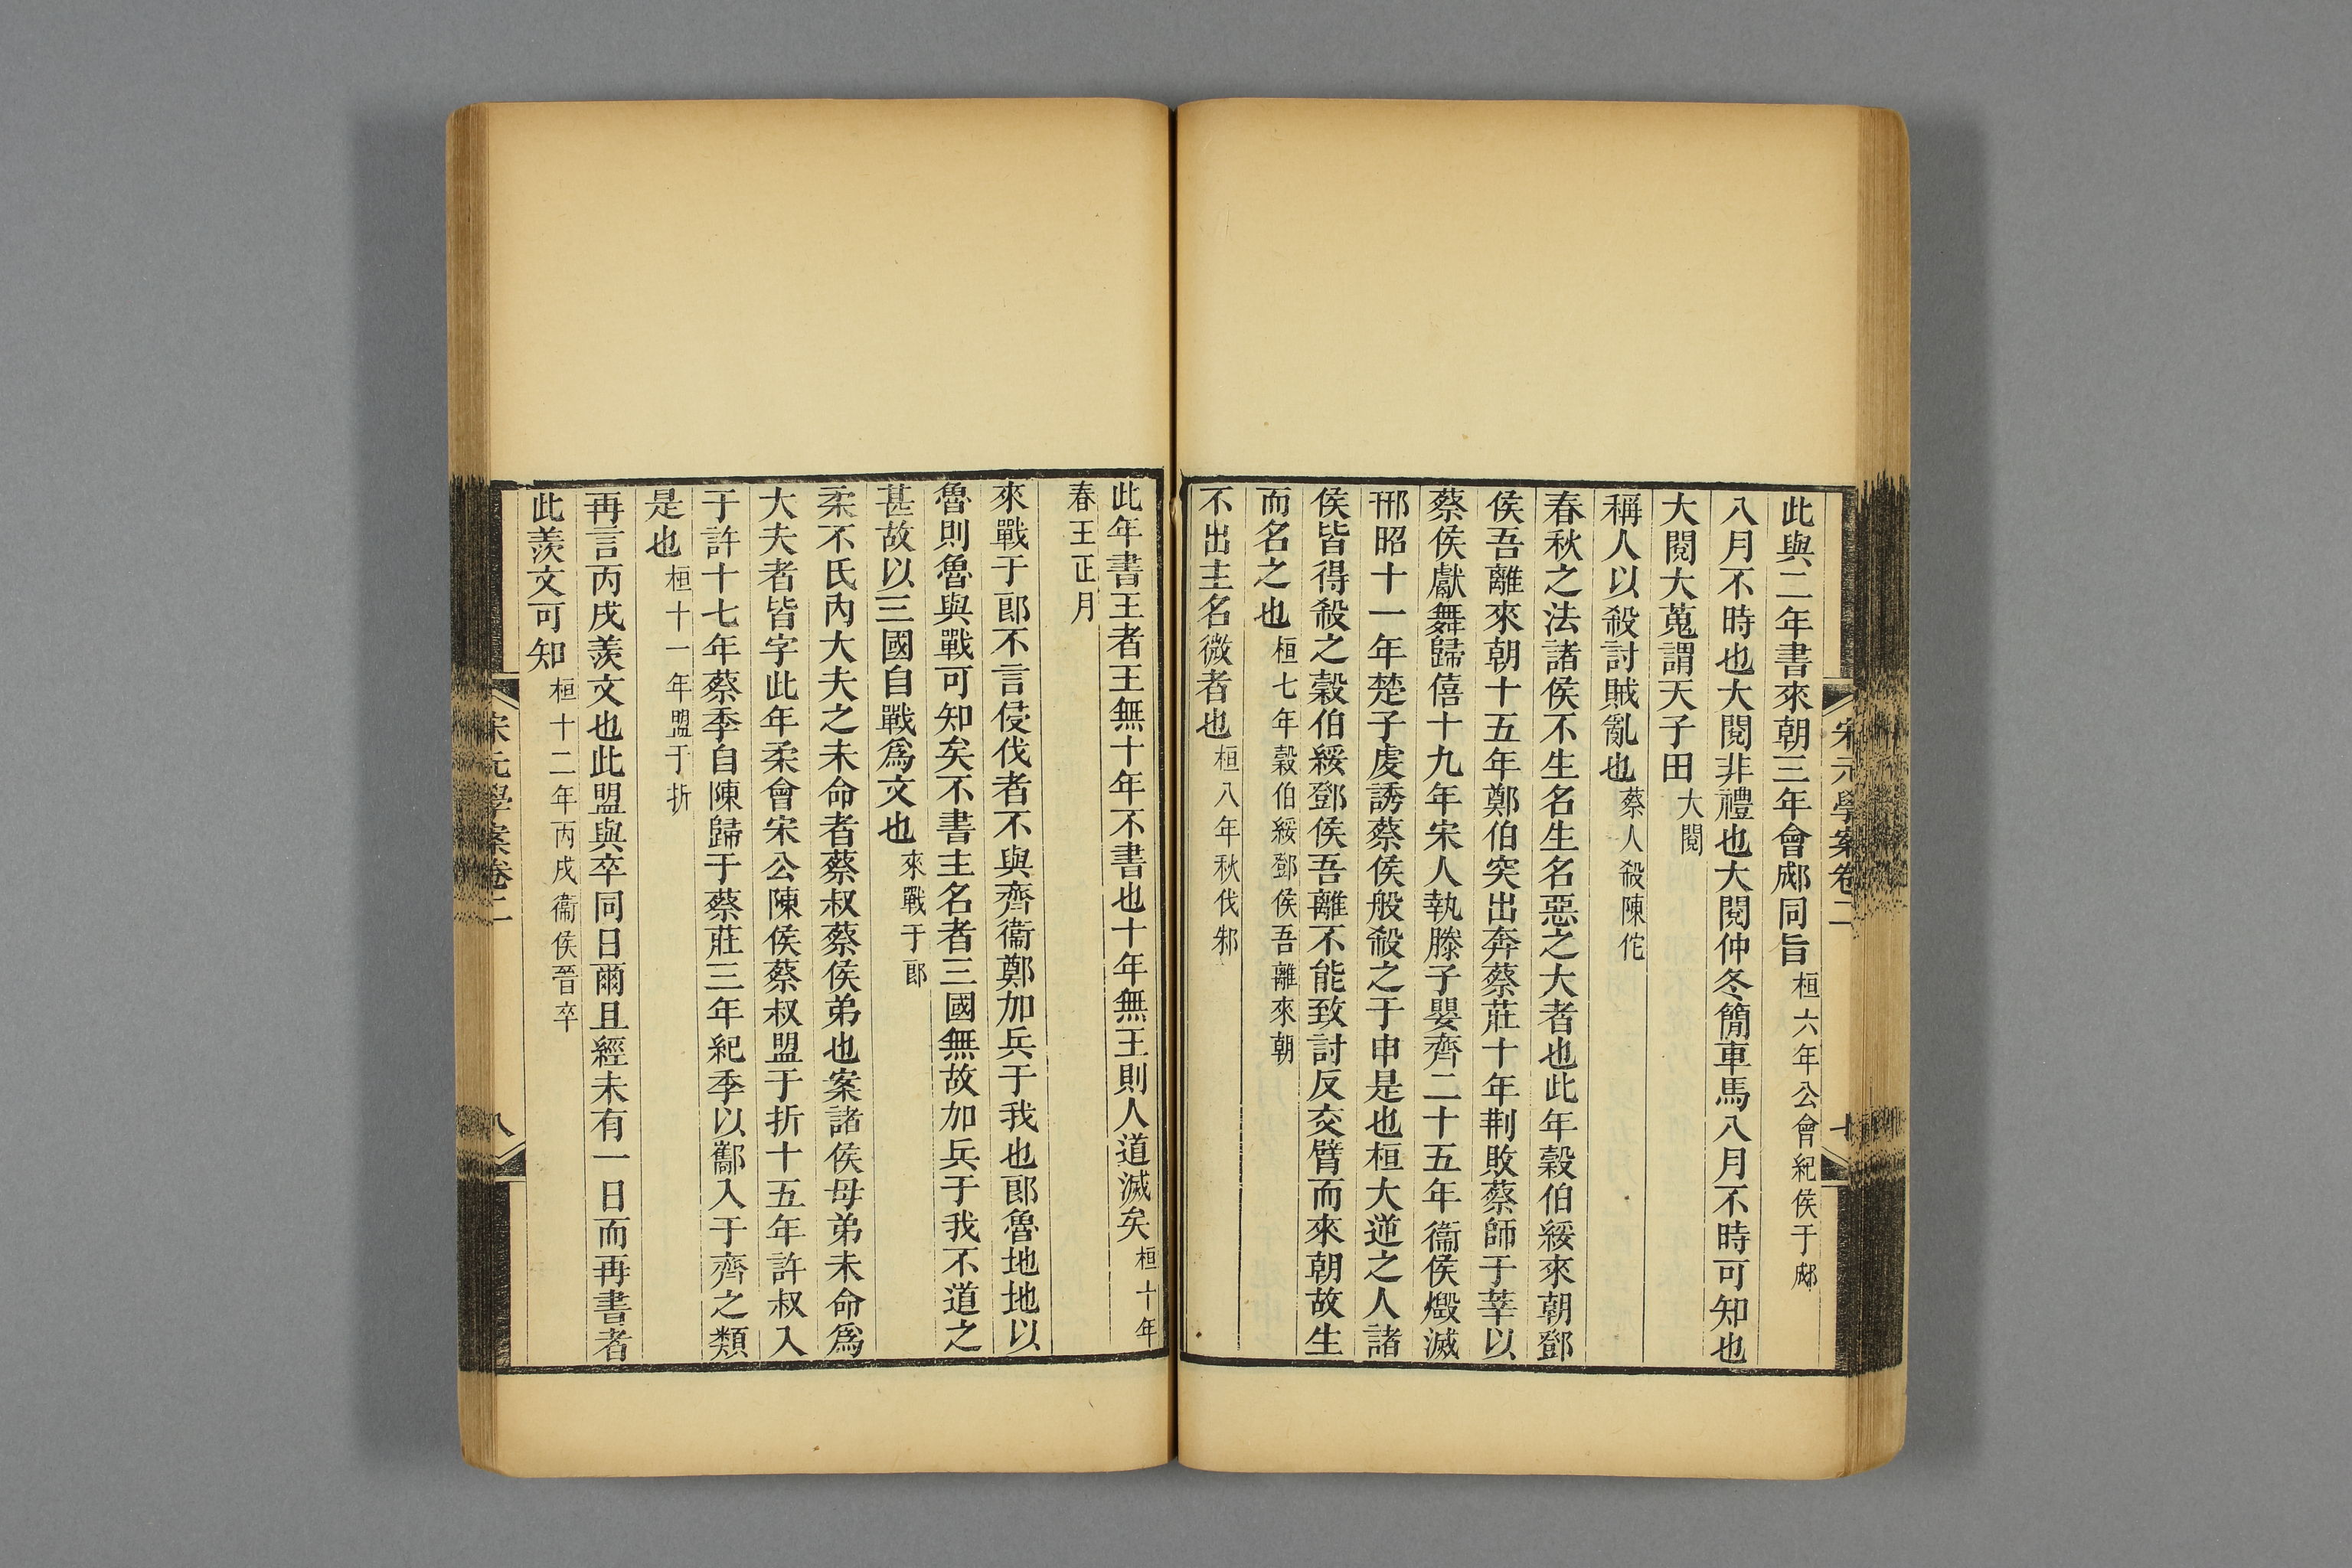 宋元學案卷二
此與二年書來朝三年會郕同旨桓六年公會紀侯于郕
八月不時也大閱非禮也大閱仲冬簡車馬八月不時可知也
大閱大蒐謂天子田大閱
稱人以殺討賊亂也蔡人殺陳佗
春秋之法諸侯不生名生名惡之大者也此年穀伯綏來朝鄧
侯吾離來朝十五年鄭伯突出奔蔡莊十年荆敗蔡師于莘以
蔡侯獻舞歸僖十九年宋人執滕子嬰齊二十五年衞侯燬滅
邢昭十一年楚子虔誘蔡侯般殺之于申是也桓大逆之人諸
侯皆得殺之穀伯綏鄧侯吾離不能致討反交臂而來朝故生
而名之也桓七年穀伯綏鄧侯吾離來朝
不出主名微者也桓八年秋伐邾
此年書王者王無十年不書也十年無王則人道滅矣桓十年
春王正月
來戰于郎不言侵伐者不與齊衞鄭加兵于我也郎魯地地以
魯則魯與戰可知矣不書主名者三國無故加兵于我不道之
甚故以三國自戰爲文也來戰于郎
柔不氏內大夫之未命者蔡叔蔡侯弟也案諸侯母弟未命爲
大夫者皆字此年柔會宋公陳侯蔡叔盟于折十五年許叔入
于許十七年蔡季自陳歸于蔡莊三年紀季以酅入于齊之類
是也桓十一年盟于折
再言丙戌羨文也此盟與卒同日爾且經未有一日而再書者
此羨文可知桓十二年丙戌衞侯晉卒
宋元學案卷二
八